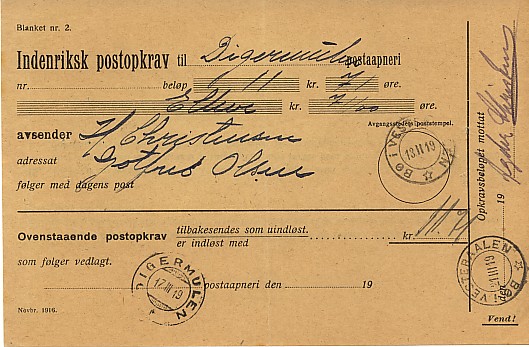 Blanket nr. 2.
Indenriksk postopkrav til Digermulen postaapneri
nr. beløp 11 kr. 71 øre.
Elleve kr. 71/100 øre.
Avgangsstedets poststempel.
avsender H Christensen
adressat Gotfred Olsen
følger med dagens post
BØ I VESTERAALEN
13 III 19
Ovenstaaende postopkrav tilbakesendes som uindløst.
er indløst med kr. 11.71
som følger vedlagt.
DIGERMULEN
17 III 19
postaapneri den 19
Novbr. 1916.
Opkravsbeløpet mottat
den 19
BØ I VESTERAALEN
19 III 19
Vend!